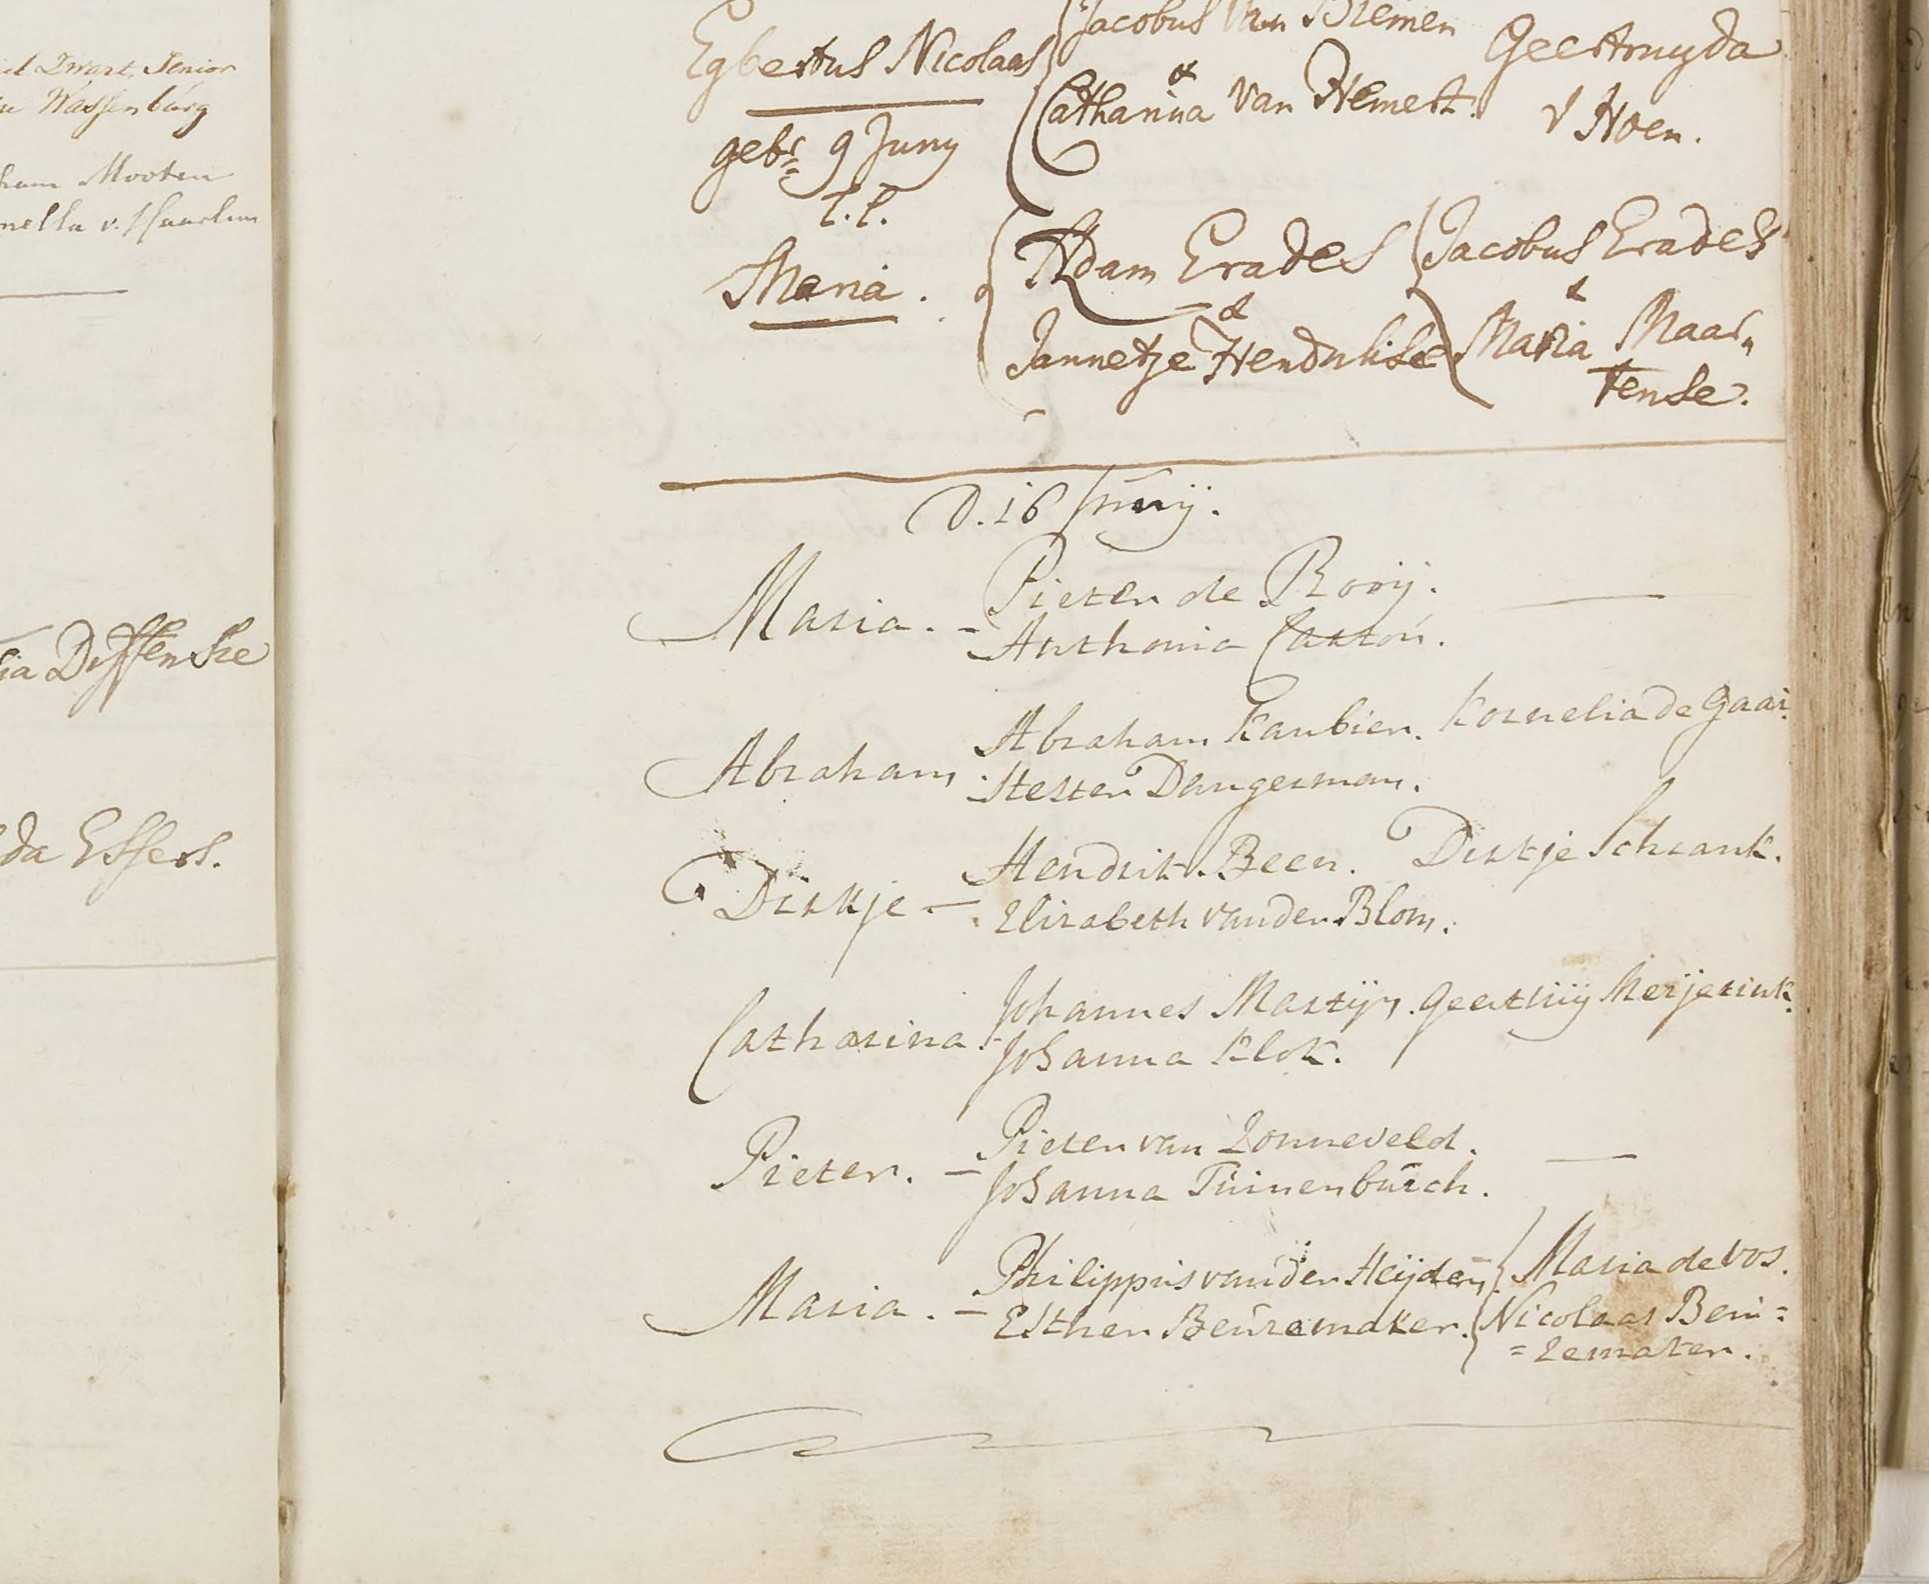 Zwart, Senior
Wassenburg
Mooten
v. Haarlem
Diffenske
da Essers.
Egbertus Nicolaas
gebr 9 Juny
l.l.
Jacobus Van Bremen
&
Catharina Van Hemert.
Geertruyda
v Hoen.
Maria.
Adam Erades
&
Jannetje Hendrikse
Jacobus Erades
&
Maria Maar„
tense.
D. 16 Junij.
Maria. - Pieter de Rooij. —
Anthonia Caston.
Abraham, Abraham Kaubier. Kornelia de Gaai.
Hester Dangerman.
Dirkje — Hendrik Been. Dirkje Schrank.
Elizabeth van der Blom.
Catharina. Johannes Martijn. Geertruij Merjerink.
Johanna Klok.
Pieter. — Pieter van Zonneveld. —
Johanna Tuinenburch.
Maria. — Philippus van der Heijden, Maria de Vos.
Esther Beuzemaker. Nicolaas Beu=
=zemaker.